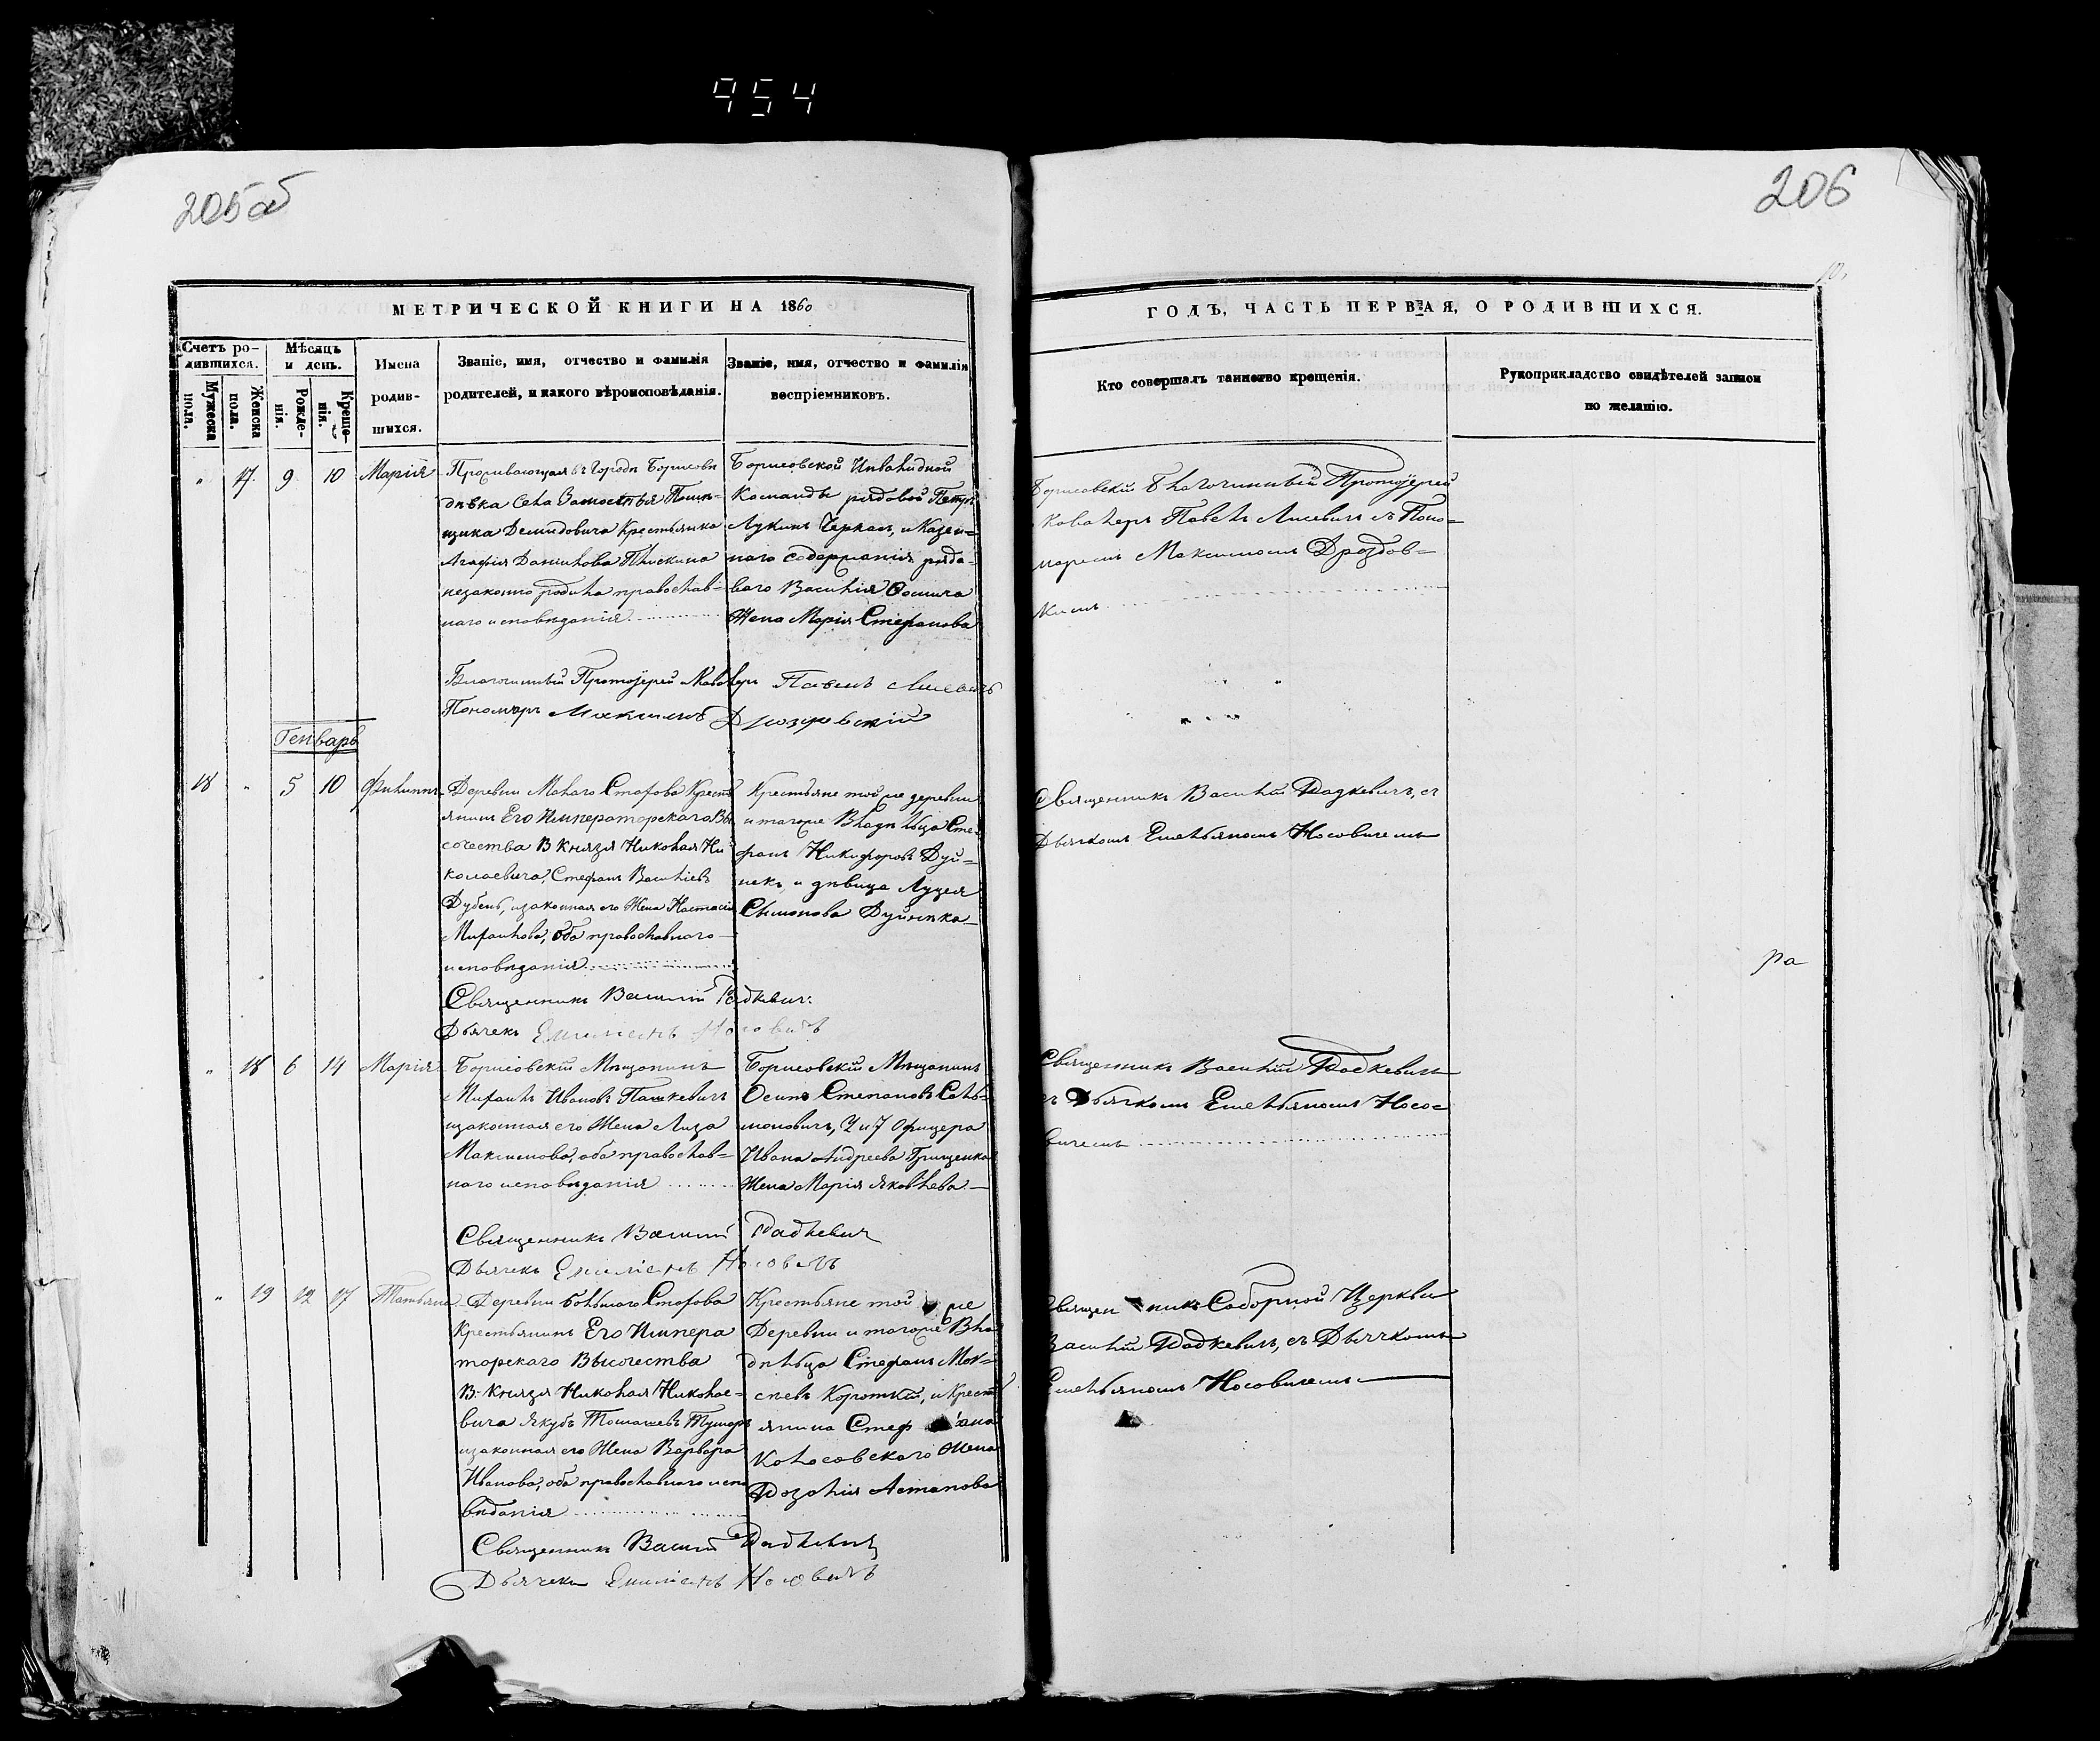 954
205об
206
МЕТРИЧЕСКОЙ КНИГИ НА 1860
ГОДЪ, ЧАСТЬ ПЕРВАЯ, О РОДИВШИХСЯ.
Счетъ ро-
дившихся.
Мужеска
пола.
Женска
пола.
Мѣсяцъ
и день.
Рожде-
нія.
Креще-
нія.
Имена
родив-
шихся.
Званіе, имя, отчество и фамилія
родителей, и какого вѣроисповѣданія.
Званіе, имя, отчество и фамилія
воспріемниковъ.
Кто совершалъ таинство крещенія.
Рукоприкладство свидѣтелей записи
по желанію.
" 17. 9 10 Марія
Проживающая въ Городѣ Борисовѣ
дѣвка Села Замостья Помѣ-
щика Демидовича Крестьянка
Агафія Данилова Плискина
незаконно родила православ-
наго исповѣданія
Борисовской Инвалидной
Команды рядовой Петръ
Лукинъ Черкасъ, и Казен-
наго содержанія рядо-
ваго Василія Фомича
Жена Марія Стефанова
Борисовскій Благочинный Протоіерей
Кавалеръ Павелъ Лисевичъ съ Поно-
маремъ Максимомъ Дроздов-
скимъ
Благочинный Протоіерей Кавалеръ Павелъ Лисевичъ
Пономарь Максимъ Дроздовскій
Генварь
18 " 5 10 Филиппъ
Деревни Малаго Стахова Кресть
янинъ Его Императорскаго Вы
сочества В Князя Николая Ни
колаевича, Стефанъ Васильевъ
Дубень, изаконная его Жена Настасія
Михайлова, оба православнаго
исповѣданія
Крестьяне той же деревни
и тогоже Владѣльца Сте-
фанъ Никифоровъ Дуй-
некъ, и дѣвица Луцея
Сымонова Дуйнѣка
Священникъ Василій Радкевичъ, съ
Дьячкомъ Емельяномъ Носовичемъ
ра
Священникъ Василій Радкевичъ
Дьячекъ Емиліянъ Носовичъ
" 18 6 14 Марія
Борисовскій Мѣщанинъ
Михаилъ Ивановъ Пашкевичъ
изаконная его Жена Лиза
Максимова, оба православ-
наго исповѣданія
Борисовскій Мѣщанинъ
Осипъ Степановъ Сель-
моновичъ, Офицера
Ивана Андреева Грищенко
Жена Марія Яковлева
Священникъ Василій Радкевичъ
съ Дьячкомъ Емельяномъ Носо-
вичемъ
Священникъ Василій Радкевичъ
Дьячекъ Емиліянъ Носовичъ
" 19 12 17 Татьяна
Деревни Большаго Стахова
Крестьянинъ Его Импера
торскаго Высочества
В. Князя Николая Николае-
вича Якубъ Томашевъ
изаконная его Жена Варвара
Иванова, оба православнаго испо
вѣданія
Крестьяне той же
Деревни и тогоже Вла
дѣльца Стефанъ Мои-
сеевъ Короткій, и Кресть
янина Стефана
Колосовскаго Жена
Розалія Астапова
Священникъ Соборной Церкви
Василій Радкевичъ, съ Дьячкомъ
Емельяномъ Носовичемъ
Священникъ Василій Радкевичъ
Дьячекъ Емиліянъ Носовичъ